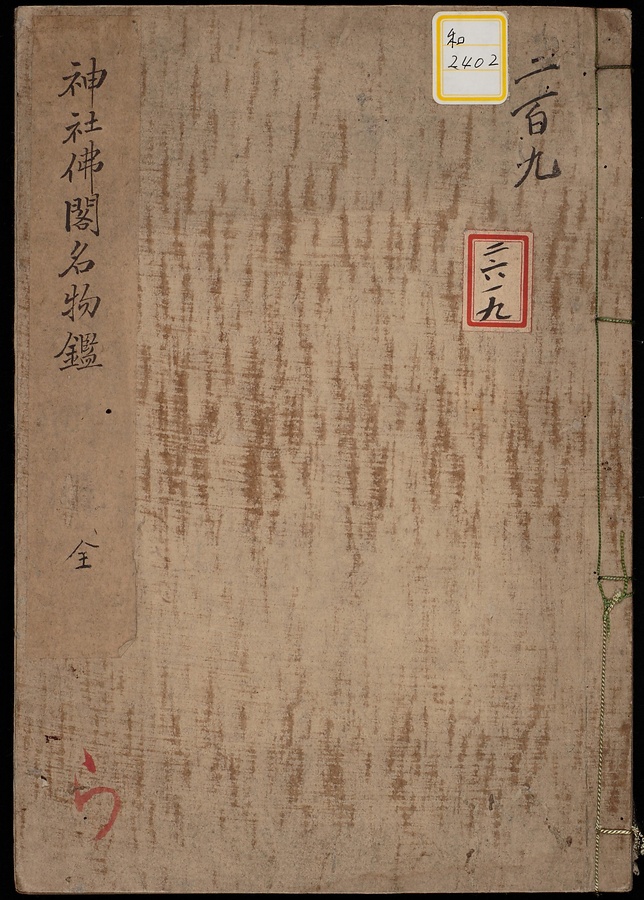 和
2402
二百九
二六一九
神社佛閣名物鑑 全
ら